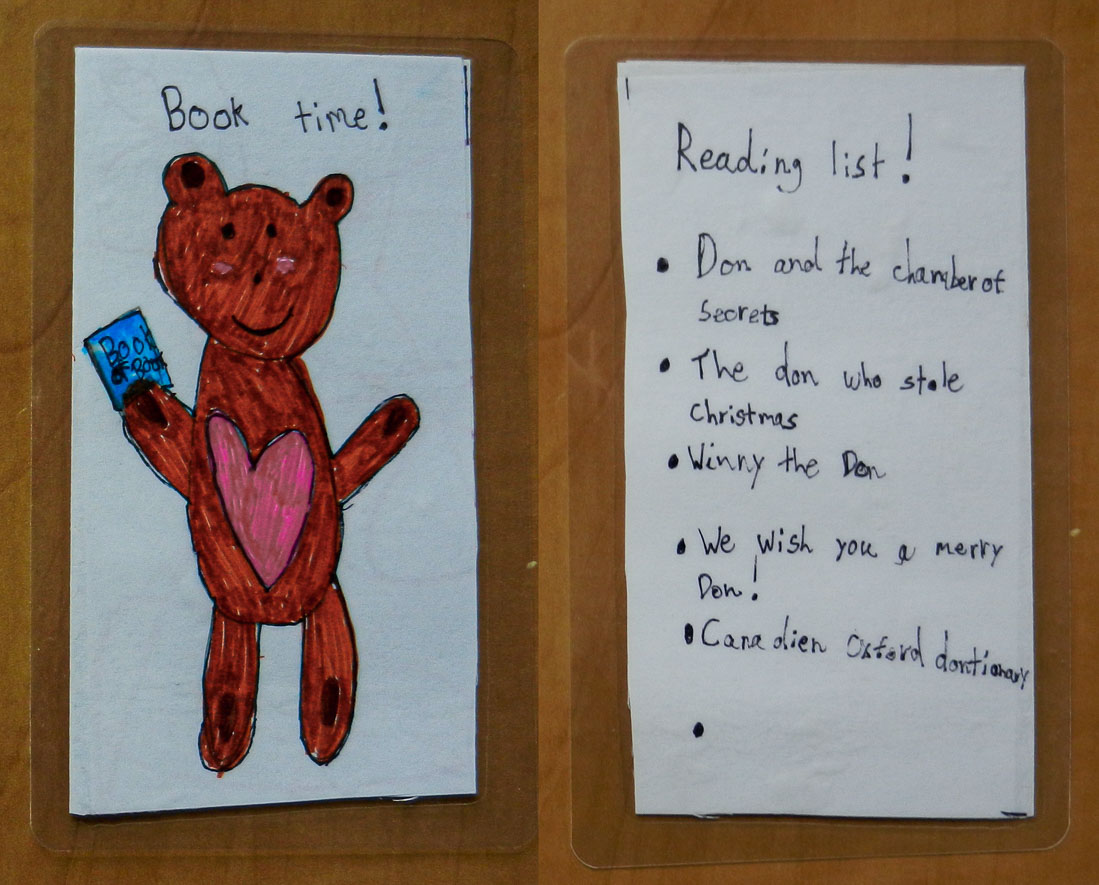 Book time!
Book
of Book
Reading list!
• Don and the chamber of
secrets
• The don who stole
christmas
• Winny the Don
• We wish you a merry
Don!
• Canadien Oxford dontionary
•